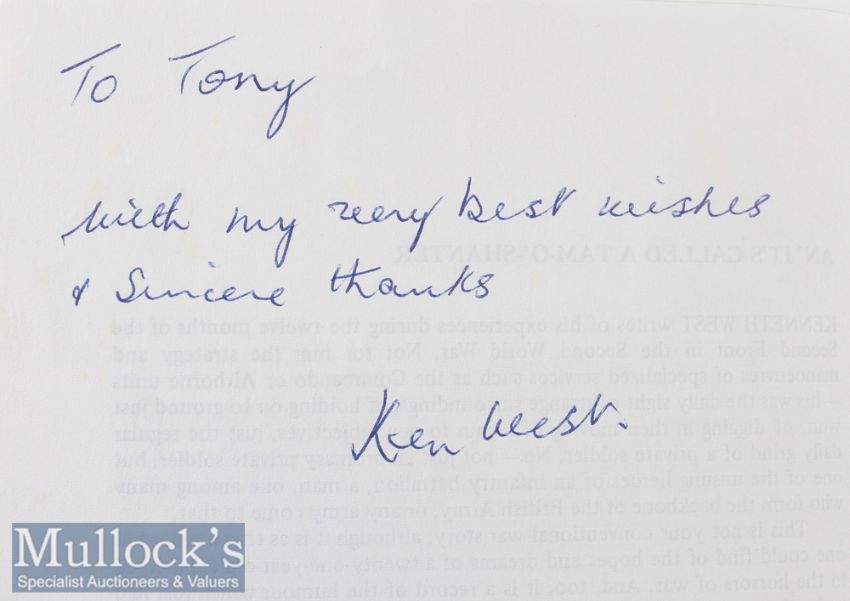 To Tony
with my very best wishes
& Sincere thanks
Ken West.
AN' IT'S CALLED A TAM-O'-SHANTER
KENNETH WEST writes of his experiences during the twelve months of the
Second Front in the Second World War. Not for him the strategy and
manoeuvres of specialized services such as the Commando or Airborne units
— his was the daily sight of strange surroundings, of holding on to ground just
won, of digging in then moving on to objectives, just the regular
daily grind of a private soldier. No — not just an ordinary private soldier, but
one of the unsung heroes of an infantry battalion, a man, one among many
who form the backbone of the British Army, or any army come to that.
This is not your conventional war story, although it is as
one could find of the hopes and dreams of a twenty-one-year-old
to the horrors of war. And, too, it is a record of the humour which
Mullock's
Specialist Auctioneers & Valuers